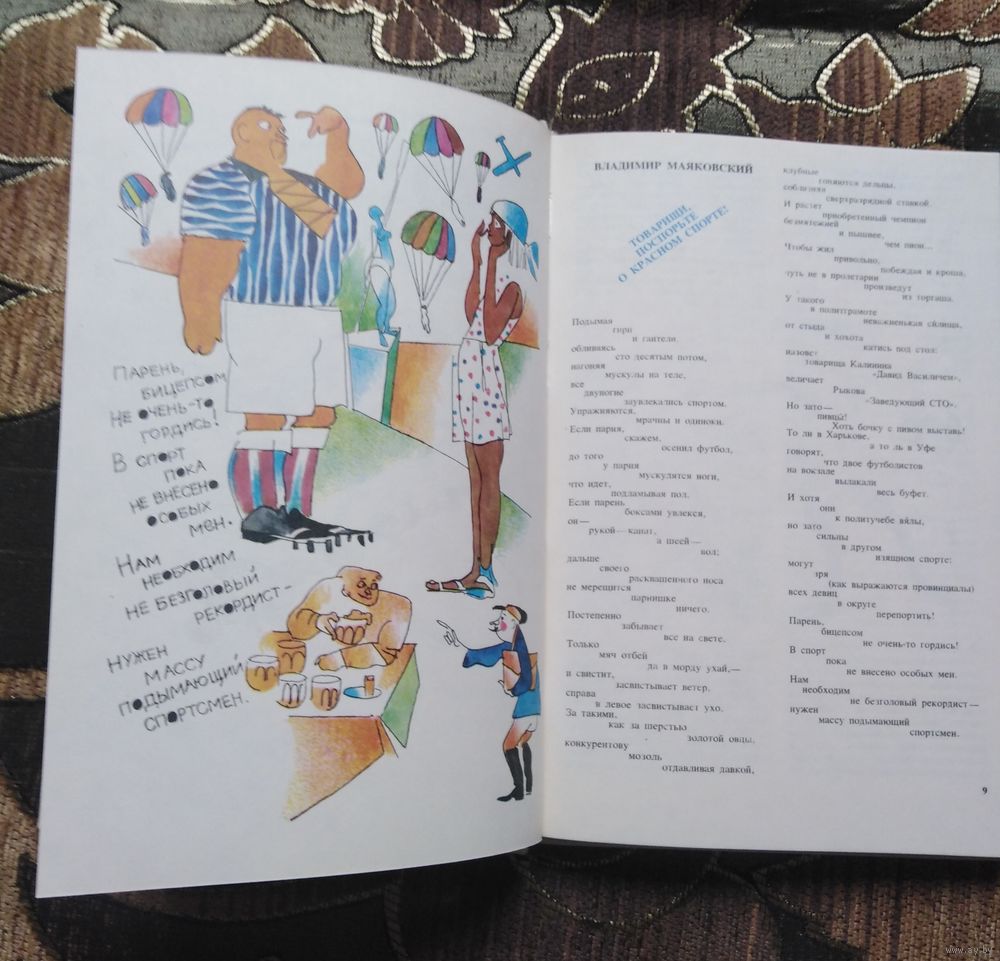 ПАРЕНЬ,
БИЦЕПСОМ
НЕ ОЧЕНЬ-ТО
ГОРДИСЬ!
В СПОРТ
ПОКА
НЕ ВНЕСЕНО
ОСОБЫХ
МЕН.
НАМ
НЕОБХОДИМ
НЕ БЕЗГОЛОВЫЙ
РЕКОРДИСТ-
НУЖЕН
МАССУ
ПОДЫМАЮЩИЙ
СПОРТСМЕН.
ВЛАДИМИР МАЯКОВСКИЙ
ТОВАРИЩИ,
ПОСПОРЬТЕ
О КРАСНОМ СПОРТЕ!
Подымая
гири
и гантели,
обливаясь
сто десятым потом,
нагоняя
мускулы на теле,
все
двуногие
заувлекались спортом.
Упражняются,
мрачны и одиноки.
Если парня,
скажем,
осенил футбол,
до того
у парня
мускулятся ноги,
что идет,
подламывая пол.
Если парень
боксами увлекся,
он—
рукой—канат,
а шеей—
вол;
дальше
своего
расквашенного носа
не мерещится
парнишке
ничего.
Постепенно
забывает
все на свете.
Только
мяч отбей
да в морду ухай,—
и свистит,
засвистывает ветер,
справа
в левое засвистывает ухо.
За такими,
как за шерстью
золотой овцы,
конкурентову
мозоль
отдавливая давкой,
клубные
гоняются дельцы,
соблазняя
сверхразрядной ставкой.
И растет
приобретенный чемпион
безмятежней
и пышнее,
чем пион...
Чтобы жил
привольно,
побеждая и кроша,
чуть не в пролетарии
произведут
из торгаша.
У такого
в политграмоте
неважненькая си́лища,
от стыда
и хохота
катись под стол:
назовет
товарища Калинина
«Давид Василичем»,
величает
Рыкова
«Заведующий СТО».
Но зато—
пивцы́!
Хоть бочку с пивом выставь!
То ли в Харькове,
а то ль в Уфе
говорят,
что двое футболистов
на вокзале
вылакали
весь буфет.
И хотя
они
к политучебе вя́лы,
но зато
сильны
в другом
изящном спорте:
могут
зря
(как выражаются провинциалы)
всех девиц
в округе
перепортить!
Парень,
бицепсом
не очень-то гордись!
В спорт
пока
не внесено особых мен.
Нам
необходим
не безголовый рекордист—
нужен
массу подымающий
спортсмен.
9
www.ay.by